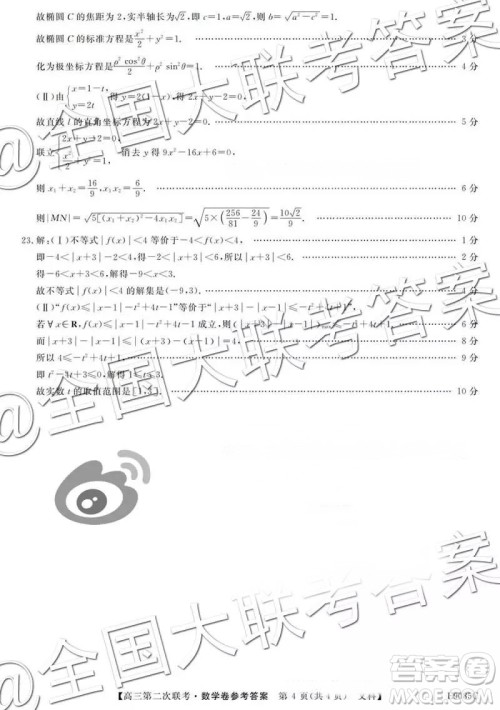 故椭圆 C 的焦距为 2,实半轴长为√2,即 c=1,a=√2,则 b=√(a²-c²)=1.
故椭圆 C 的标准方程是 x²/2+y²=1. 3 分
化为极坐标方程是 ρ²cos²θ/2+ρ²sin²θ=1. 4 分
(Ⅱ)由{x=1-t, y=2t 得 y=2(1-x),得 2x+y-2=0,
故直线 l 的直角坐标方程为 2x+y-2=0. 5 分
联立{2x+y-2=0, x²/2+y²=1, 消去 y 得 9x²-16x+6=0.
则 x₁+x₂=16/9,x₁x₂=6/9. 6 分
则|MN|=√(5[(x₁+x₂)²-4x₁x₂])=√(5×(256/81-24/9))=10√2/9. 10 分
23.解:(Ⅰ)不等式|f(x)|<4 等价于-4<f(x)<4,
即-4<|x+3|-2<4,得-2<|x+3|<6. 2 分
所以|x+3|<6,得-6<x+3<6,解得-9<x<3.
故不等式|f(x)|<4 的解集是(-9,3).
(Ⅱ)“f(x)≤|x-1|-t²+4t-1”等价于“|x+3|-|x-1|≤-t²+4t+1”.
若∀x∈R,f(x)≤|x-1|-t²+4t-1 成立,则
所以 4≤-t²+4t+1, 9 分
即 t²-4t+3≤0,解得 1≤t≤3.
故实数 t 的取值范围是[1,3]. 10 分
@全国大联考答案
【高三第二次联考·数学卷参考答案 第 4 页(共 4 页) 文科】